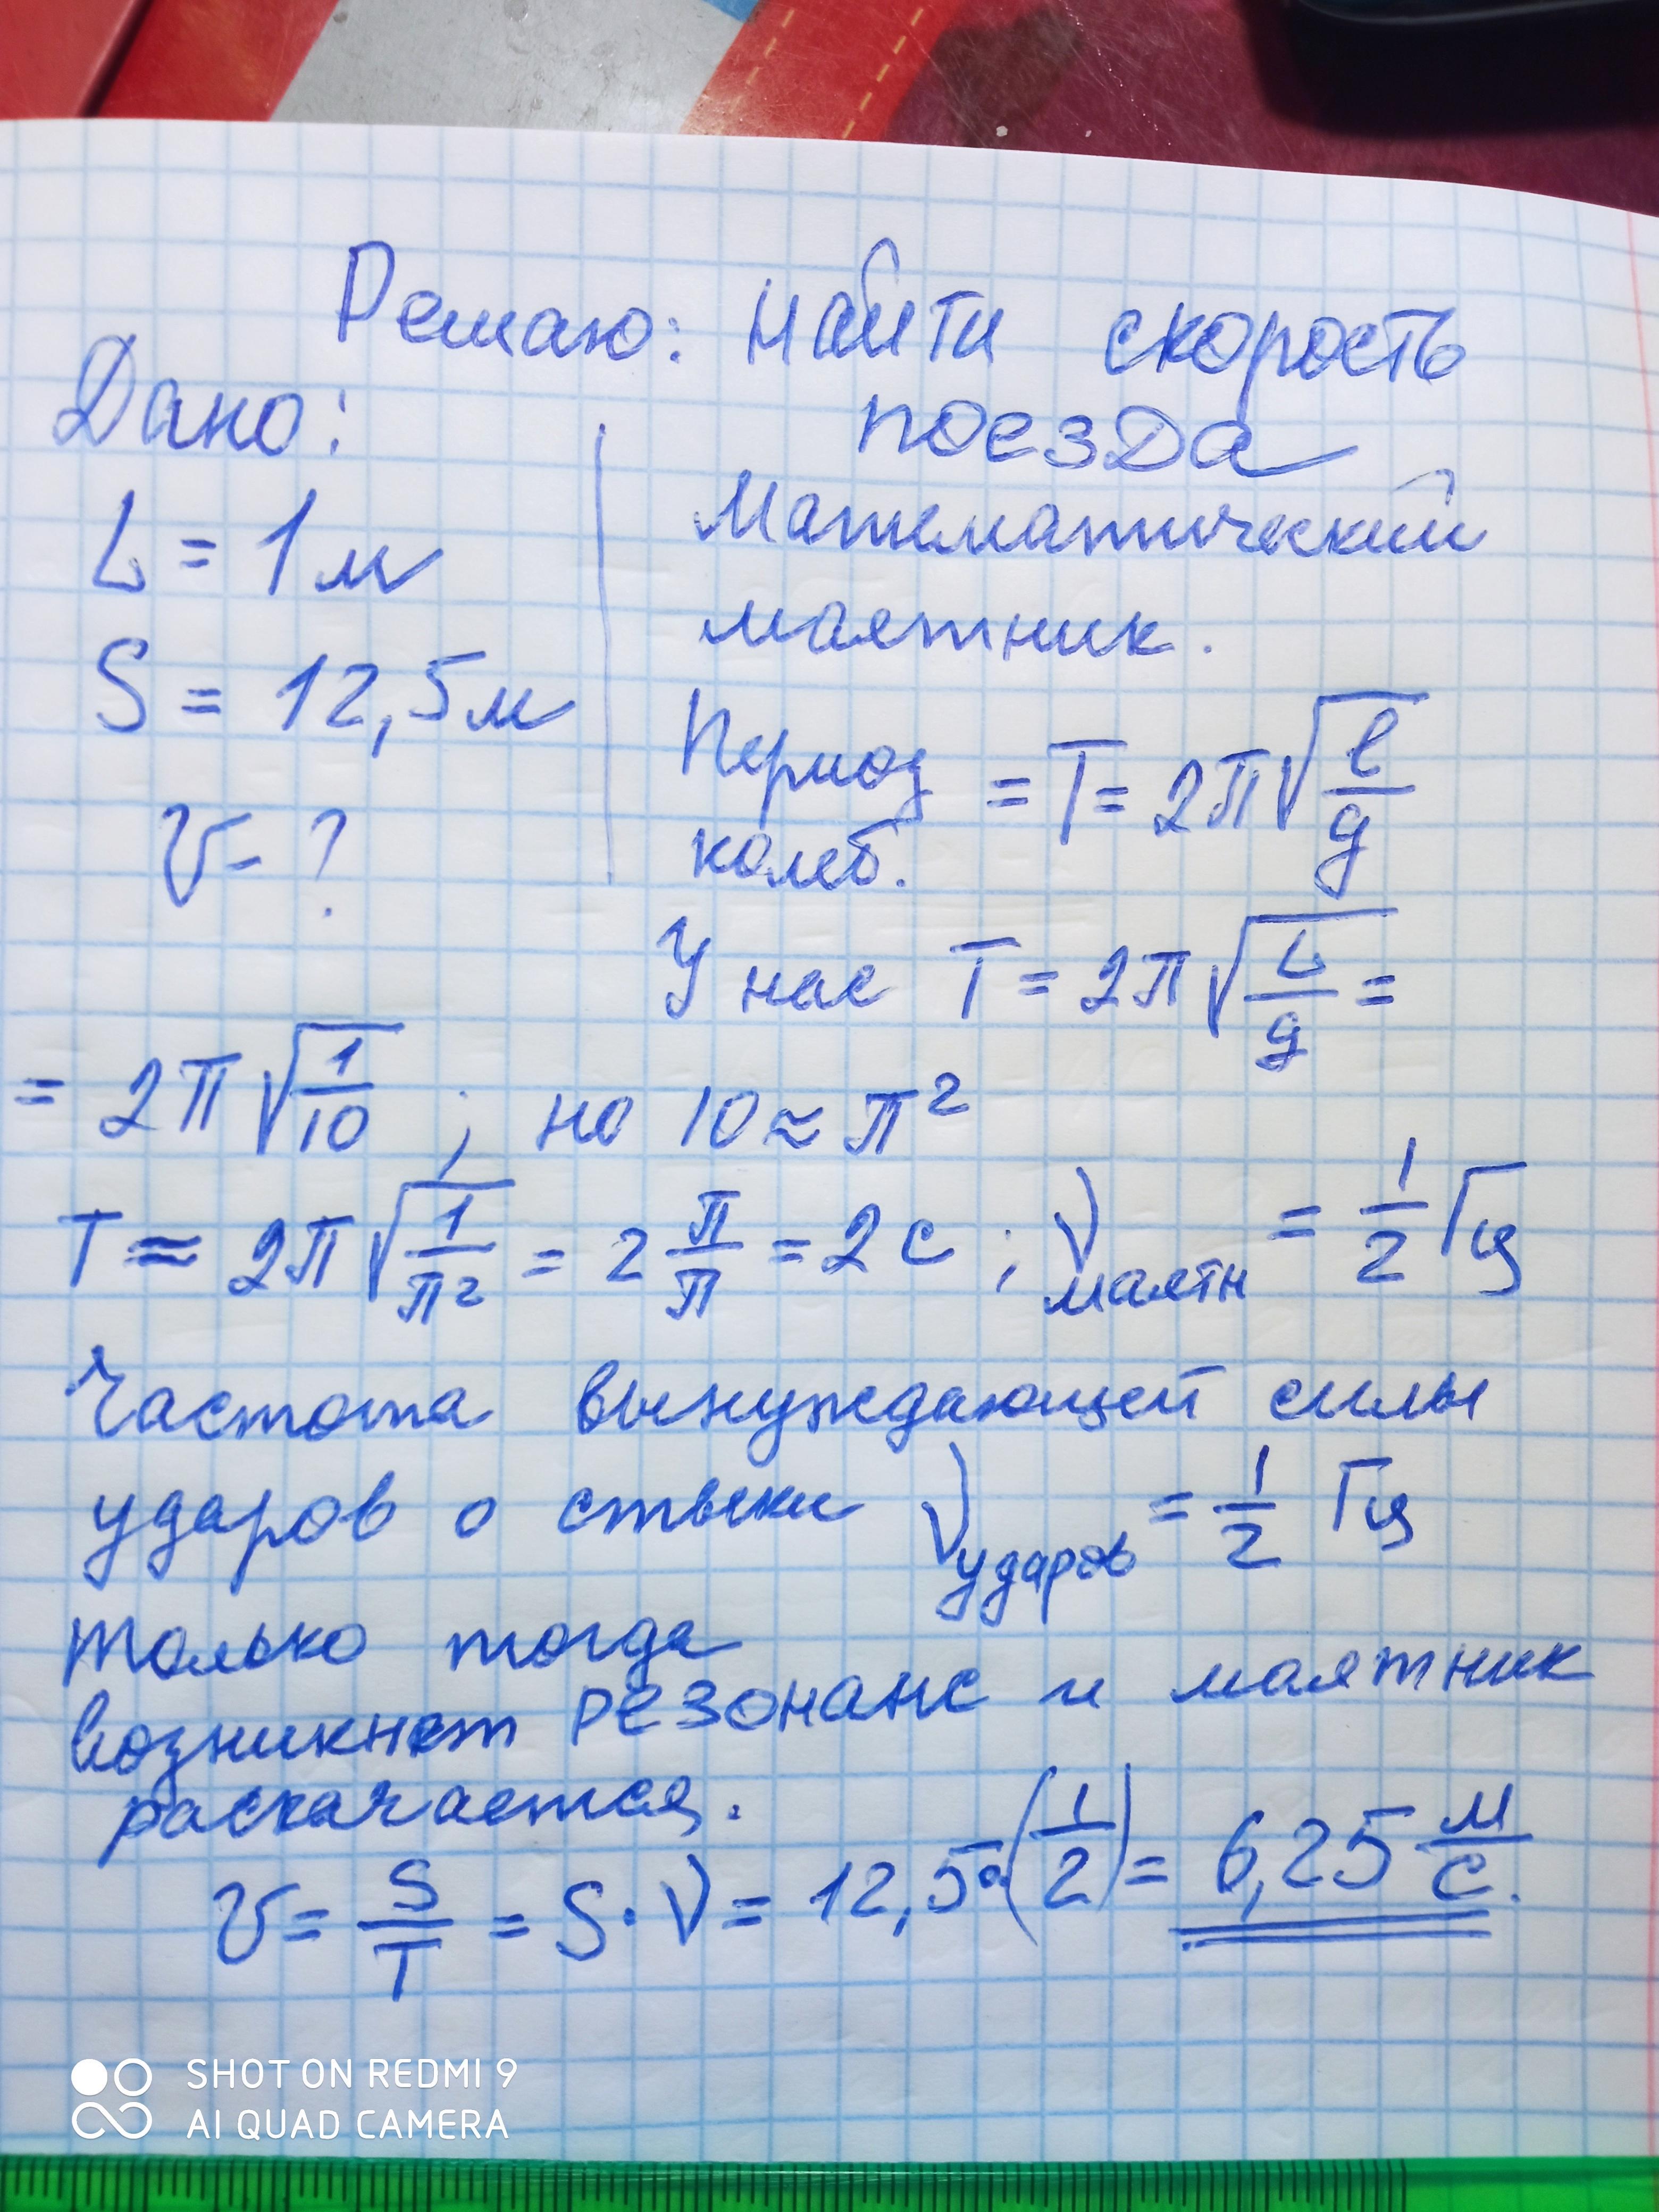 Решаю: найти скорость
поезда
Дано:
L = 1 м
S = 12,5 м
v = ?
Математический
маятник.
Период колеб. = T = 2π√(l/g)
У нас T = 2π√(L/g) =
= 2π√(1/10) ; но 10 ≈ π²
T ≈ 2π√(1/π²) = 2 π/π = 2 с ; ν маятн = 1/2 Гц
Частота вынуждающей силы
ударов о стыки ν ударов = 1/2 Гц
только тогда
возникнет резонанс и маятник
раскачается.
v = S/T = S · ν = 12,5 · (1/2) = 6,25 м/с.
SHOT ON REDMI 9
AI QUAD CAMERA